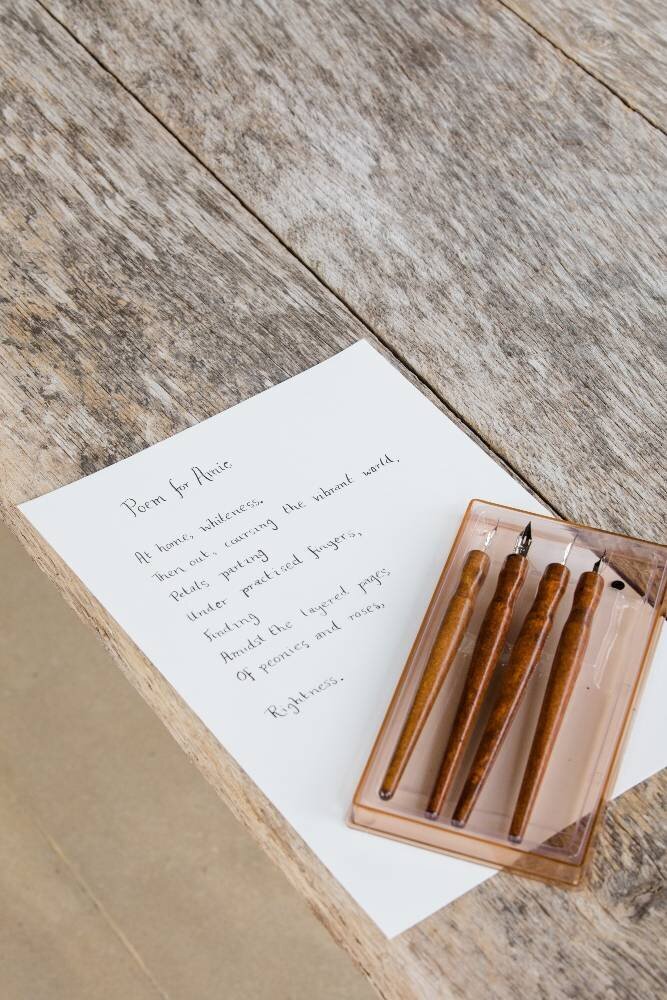 Poem for Amie
At home, whiteness.
Then out, coursing the vibrant world,
Petals parting
Under practised fingers,
Finding
Amidst the layered pages
Of peonies and roses,
Rightness.